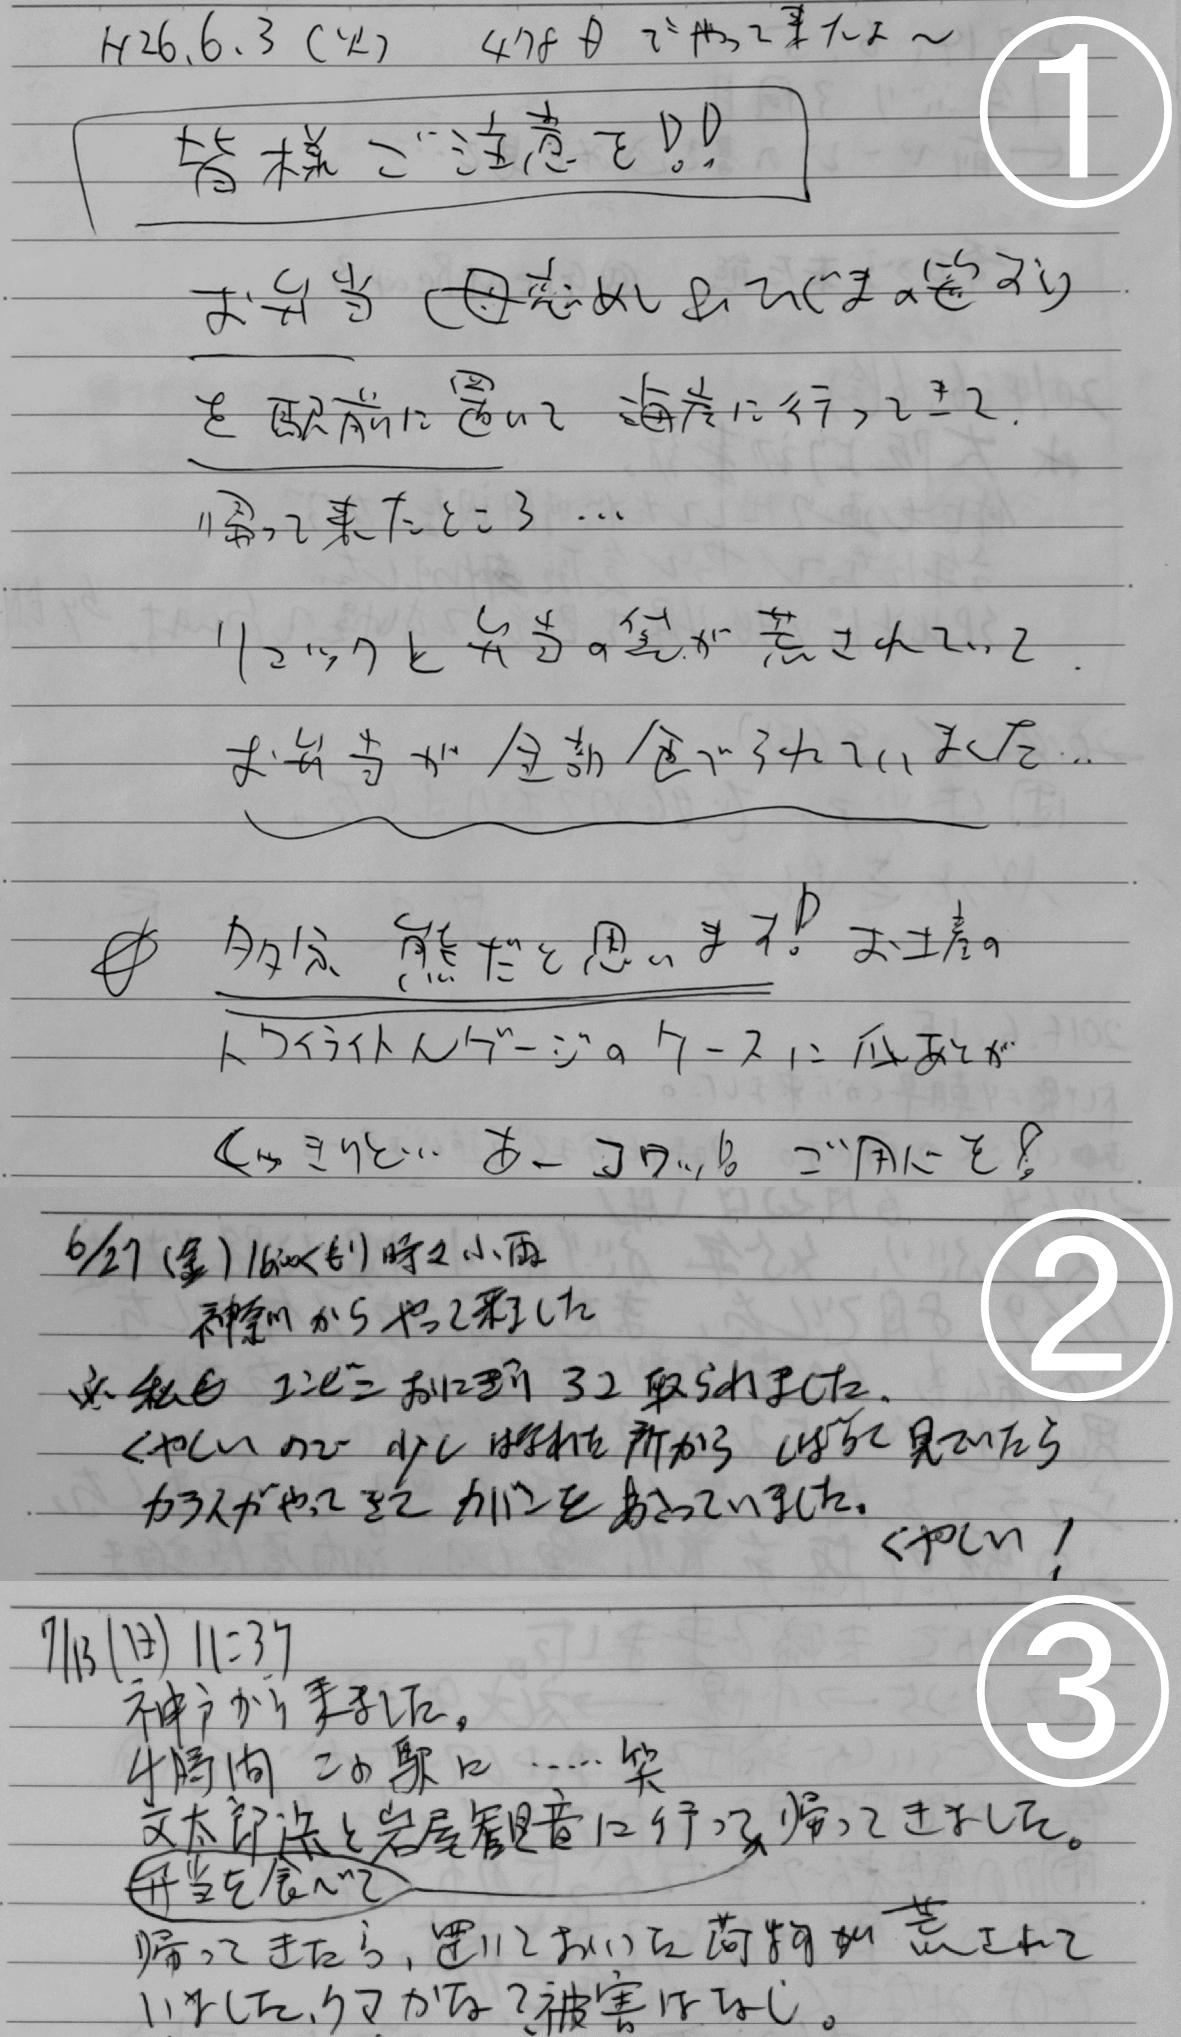 ①
H26.6.3(火) 478Dでやって来たよ〜
皆様ご注意を!!
お弁当(母恋めし
を駅前に置いて 海岸に行ってきて.
帰って来たところ…
リュックと弁当の袋が荒されていて.
お弁当が全部食べられていました…
多分、熊だと思います! お土産の
トワイライトルゲージのケースに爪あとが
くっきりと… あーコワッ!! ご用心を!
②
6/27(金) くもり時々小雨
神奈川からやって来ました
※私も コンビニおにぎり 3コ取られました。
くやしいので 少しはなれた所から しばらく見ていたら
カラスがやってきて カバンをあさっていました。
くやしい!
③
7/13(日) 11:37
神戸から来ました。
4時間 この駅に ……笑
文太郎浜と岩屋観音に行って、帰ってきました。
弁当を食べて
帰ってきたら、置いておいた荷物が荒されて
いました、クマかな?被害はなし。